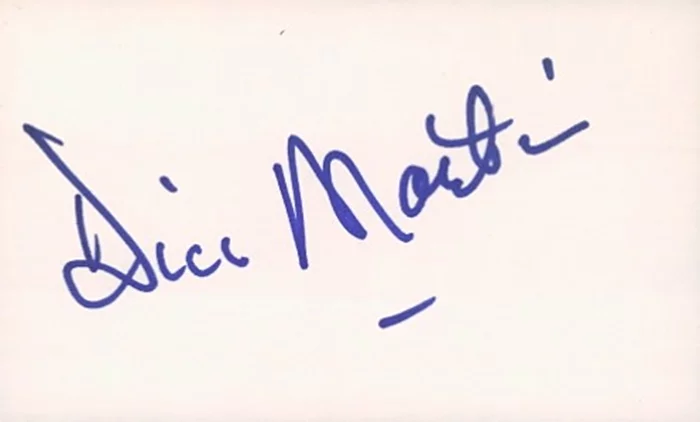 Dick Martin